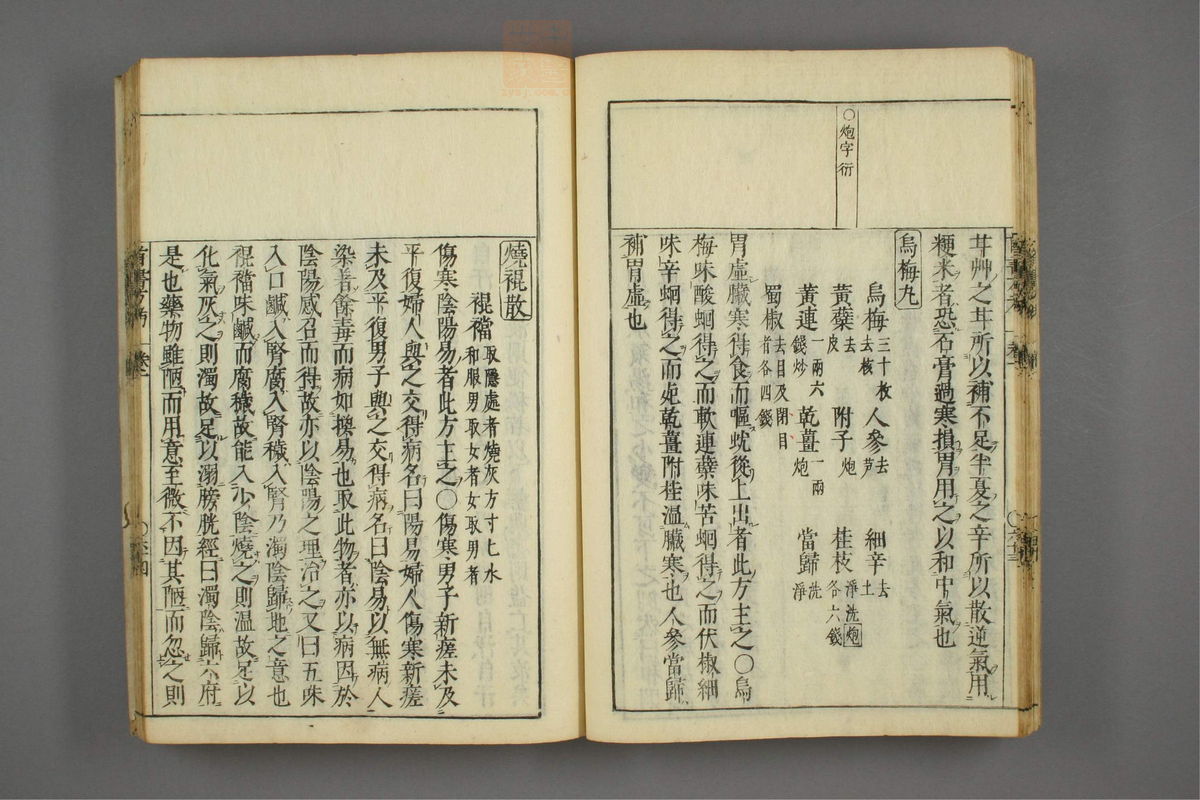 ○炮字衍
甘艸之甘所以補不足半夏之辛所以散逆氣用
粳米者恐石膏過寒損胃用之以和中氣也
烏梅丸
烏梅三十枚去核 人參去芦 細辛去土
黃蘗去皮 附子炮 桂枝淨洗炮各六錢
黃連一兩六錢炒 乾薑一兩炮 當歸洗淨
蜀椒去目及閉目者各四錢
胃虛臟寒得食而嘔蚘從上出者此方主之○烏
梅味酸蛔得之而軟連蘗味苦蛔得之而伏椒細
味辛蛔得之而死乾薑附桂溫臟寒也人參當歸
補胃虛也
燒裩散
裩襠取隱處者燒灰方寸匕水和服男取女者女取男者
傷寒陰陽易者此方主之○傷寒男子新瘥未及
平復婦人與之交得病名曰陽易婦人傷寒新瘥
未及平復男子與之交得病名曰陰易以無病人
染着餘毒而病如換易也取此物者亦以病因於
陰陽感召而得故亦以陰陽之理治之又曰五味
入口鹹入腎腐入腎穢入腎乃濁陰歸地之意也
裩襠味鹹而腐穢故能入少陰燒之則溫故足以
化氣灰之則濁故足以溺膀胱經曰濁陰歸六府
是也藥物雖陋而用意至微不因其陋而忽之則